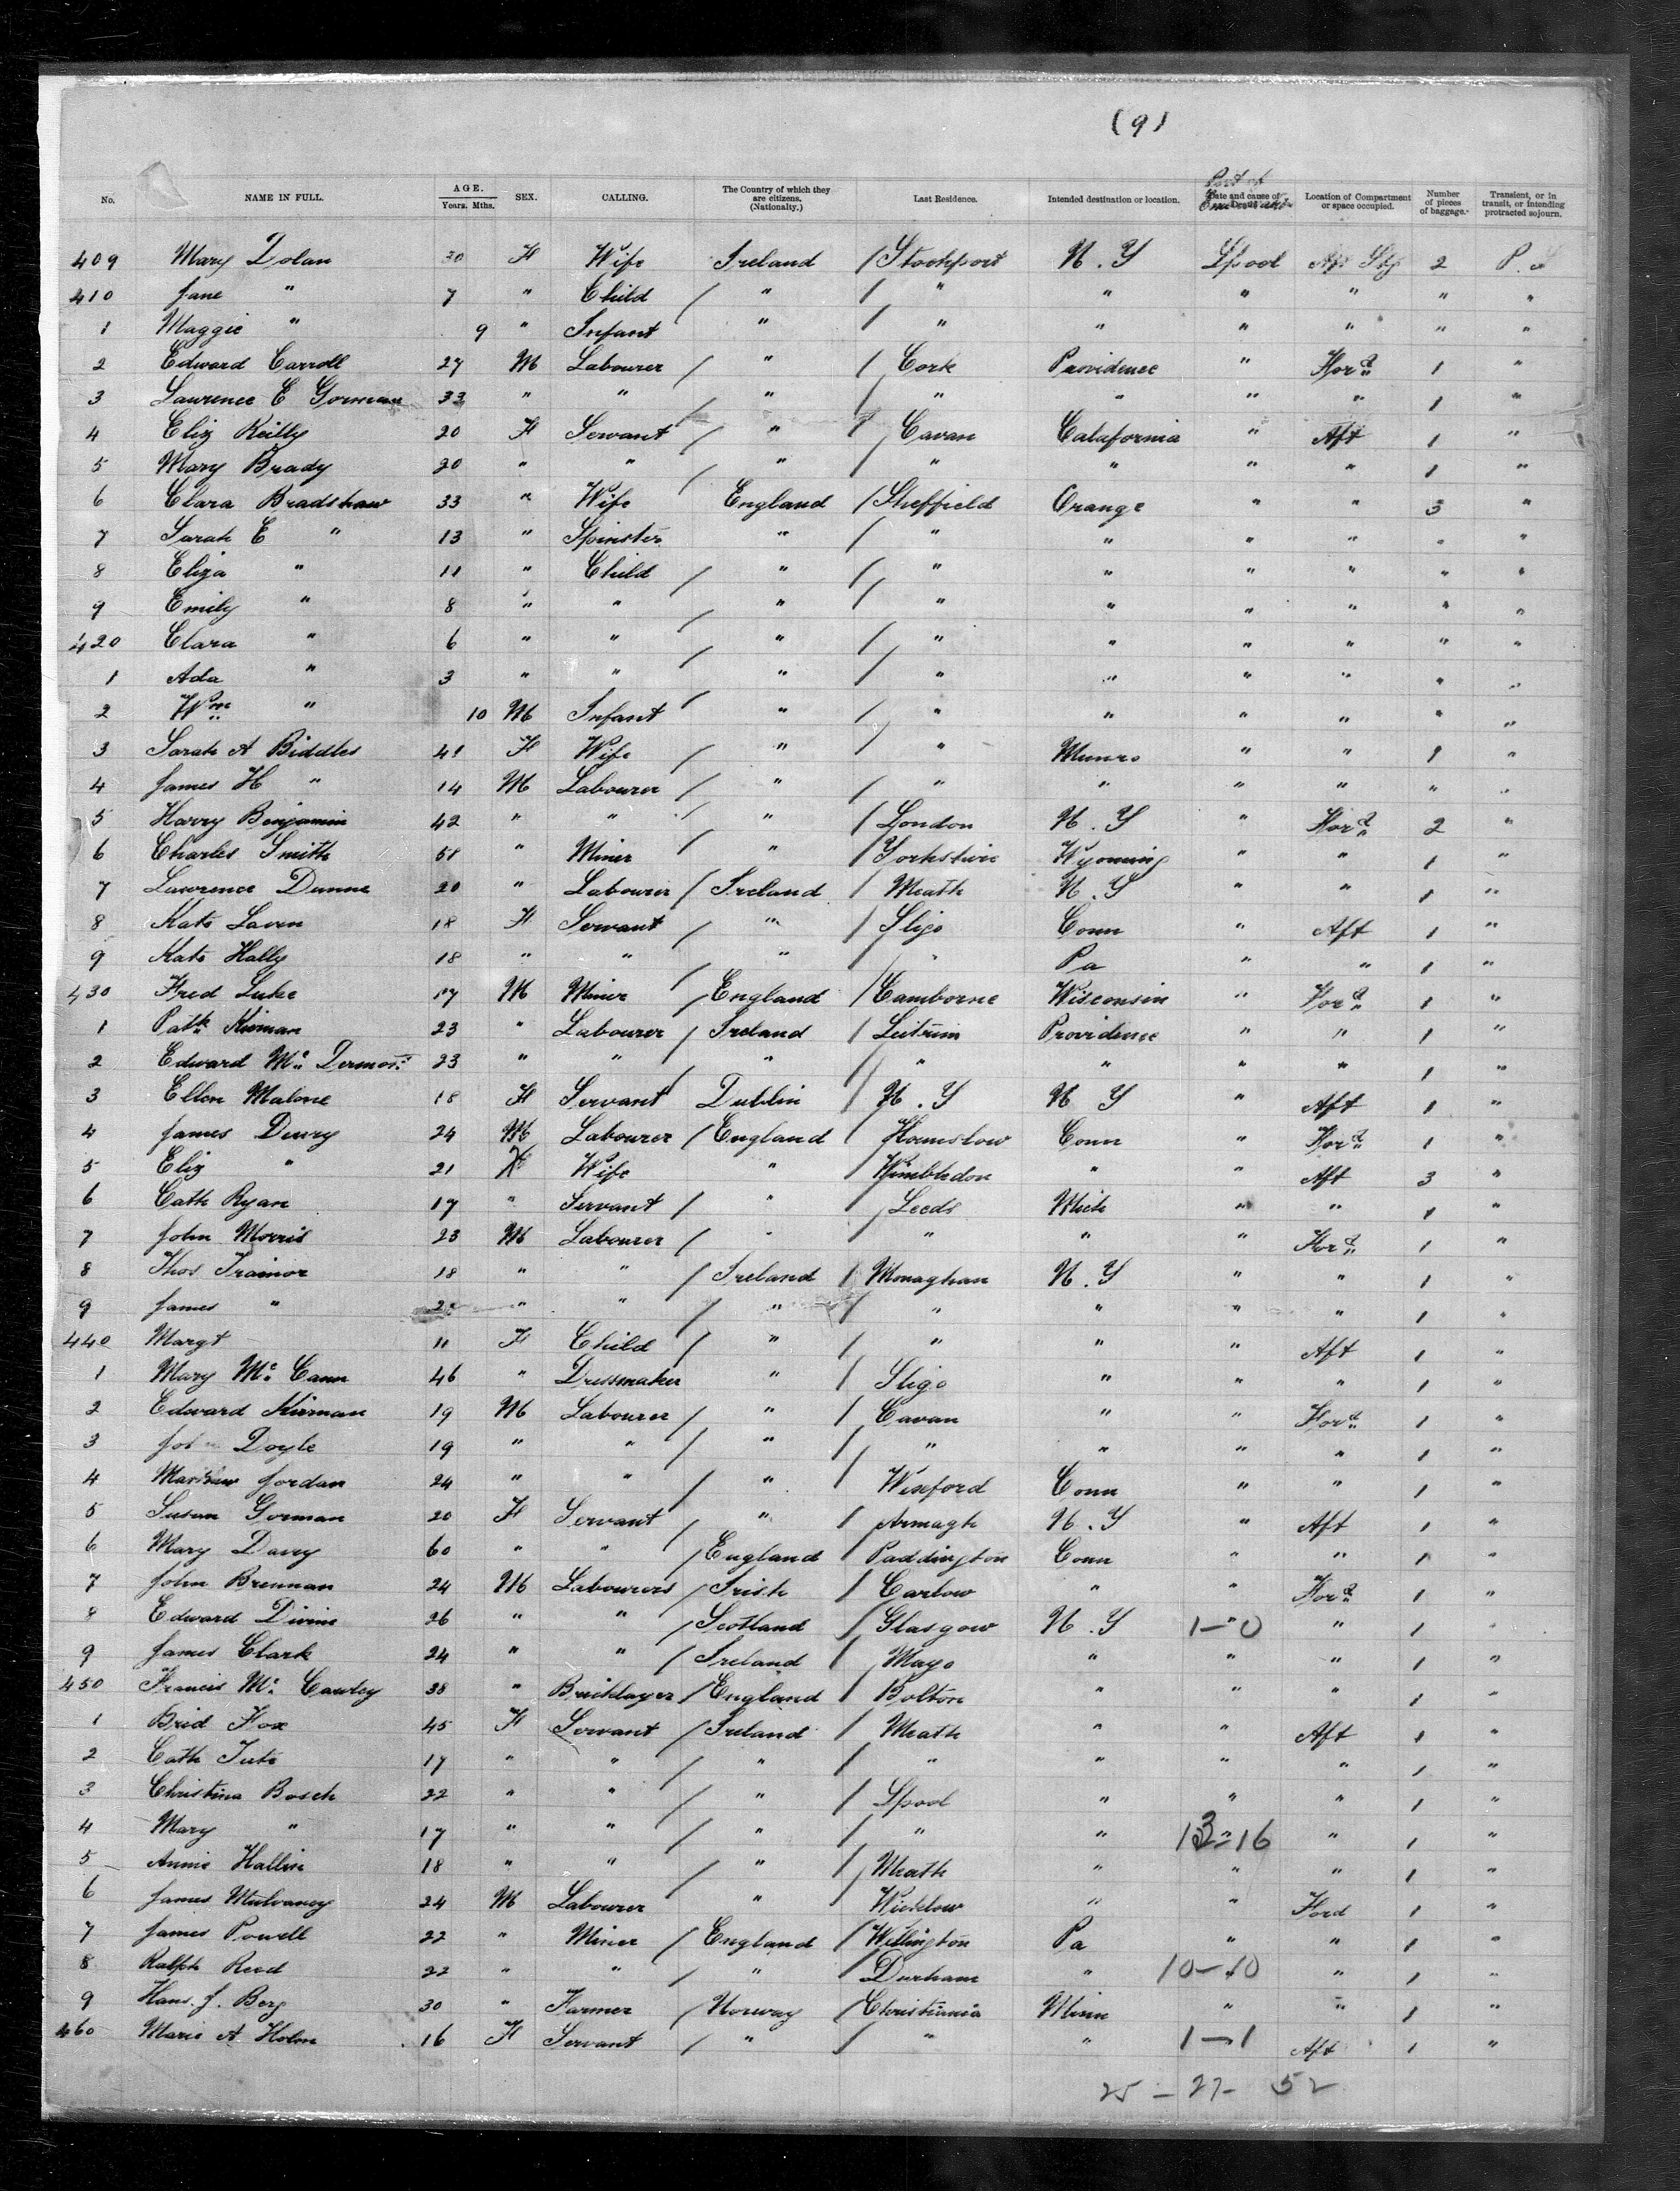 (9)
No. NAME IN FULL. AGE. Years. Mths. SEX. CALLING. The Country of which they are citizens. (Nationality.) Last Residence. Intended destination or location. Port of Date and cause of Death. Location of Compartment or space occupied. Number of pieces of baggage. Transient, or in transit, or intending protracted sojourn.
409 Mary Dolan 30 F Wife Ireland / Stockport N.Y Lpool Aft Stg 2 P.S
410 Jane " 7 " Child / " / " " " " " "
1 Maggie " 9 " Infant " / " " " " " "
2 Edward Carroll 27 M Labourer / " / Cork Providence " For d 1 "
3 Lawrence E Gorman 33 " " / " / " " " " 1 "
4 Eliz Reilly 20 F Servant / " / Cavan Calafornia " Aft 1 "
5 Mary Brady 20 " " / " / " " " " 1 "
6 Clara Bradshaw 33 " Wife England / Sheffield Orange " " 3 "
7 Sarah E " 13 " Spinster " / " " " " " "
8 Eliza " 11 " Child / " / " " " " " "
9 Emily " 8 " " / " / " " " " " "
420 Clara " 6 " " / " / " " " " " "
1 Ada " 3 " " / " / " " " " " "
2 Wm " 10 M Infant " / " " " " " "
3 Sarah A Biddles 41 F Wife / " / " Munro " " 1 "
4 James H " 14 M Labourer / " / " " " " " "
5 Harry Benjamin 42 " " / " / London N.Y " For d 2 "
6 Charles Smith 51 " Miner / " / Yorkshire Wyoming " " 1 "
7 Lawrence Dunne 20 " Labourer / Ireland / Meath N.Y " " 1 "
8 Kate Laven 18 F Servant / " / Sligo Conn " Aft 1 "
9 Kate Hally 18 " " / " / " Pa " " 1 "
430 Fred Luke 17 M Miner / England / Camborne Wisconsin " For d 1 "
1 Patk Kiernan 23 " Labourer / Ireland / Leitrim Providence " " 1 "
2 Edward Mc Dermott 23 " " / " / " " " " 1 "
3 Ellen Malone 18 F Servant Dublin / N.Y N Y " Aft 1 "
4 James Drury 24 M Labourer / England / Hounslow Conn " For d 1 "
5 Eliz " 21 F Wife " Wimbledon " " Aft 3 "
6 Cath Ryan 17 " Servant / " / Leeds Mich " " 1 "
7 John Morris 23 M Labourer / " " " " For d 1 "
8 Thos Trainor 18 " " / Ireland / Monaghan N.Y " " 1 "
9 James " " " / " / " " " " 1 "
440 Margt 11 F Child / " / " " " Aft 1 "
1 Mary Mc Cann 46 " Dressmaker " / Sligo " " " 1 "
2 Edward Kiernan 19 M Labourer / " / Cavan " " For d 1 "
3 John Doyle 19 " " / " / " " " " 1 "
4 Jordan 24 " " / " / Wexford Conn " " 1 "
5 Susan Gorman 20 F Servant / " / Armagh N.Y " Aft 1 "
6 Mary Davey 60 " " / England / Paddington Conn " " 1 "
7 John Brennan 24 M Labourers / Irish / Carlow " " For d 1 "
8 Edward Divine 26 " " / Scotland / Glasgow N.Y 1-0 " 1 "
9 James Clark 24 " " / Ireland / Mayo " " " 1 "
450 Francis Mc Cawley 38 " Bricklayer / England / Bolton " " " 1 "
1 Brid Fox 45 F Servant / Ireland / Meath " " Aft 1 "
2 Cath Tute 17 " " / " / " " " " 1 "
3 Christina Bosch 22 " " / " / Lpool " " " 1 "
4 Mary " 17 " " / " / " " 13-16 " 1 "
5 Annie Hallin 18 " " / " / Meath " " " 1 "
6 James Mulvaney 24 M Labourer " Wicklow " " Ford 1 "
7 James Powell 22 " Miner / England / Willington Pa " " 1 "
8 Ralph Reed 22 " " / " / Durham " 10-10 " 1 "
9 Hans. J. Berg 30 " Farmer / Norway / Christiania Minn " " 1 "
460 Marie A Holm 16 F Servant / " / " " 1-1 Aft 1 "
25 - 27 - 52